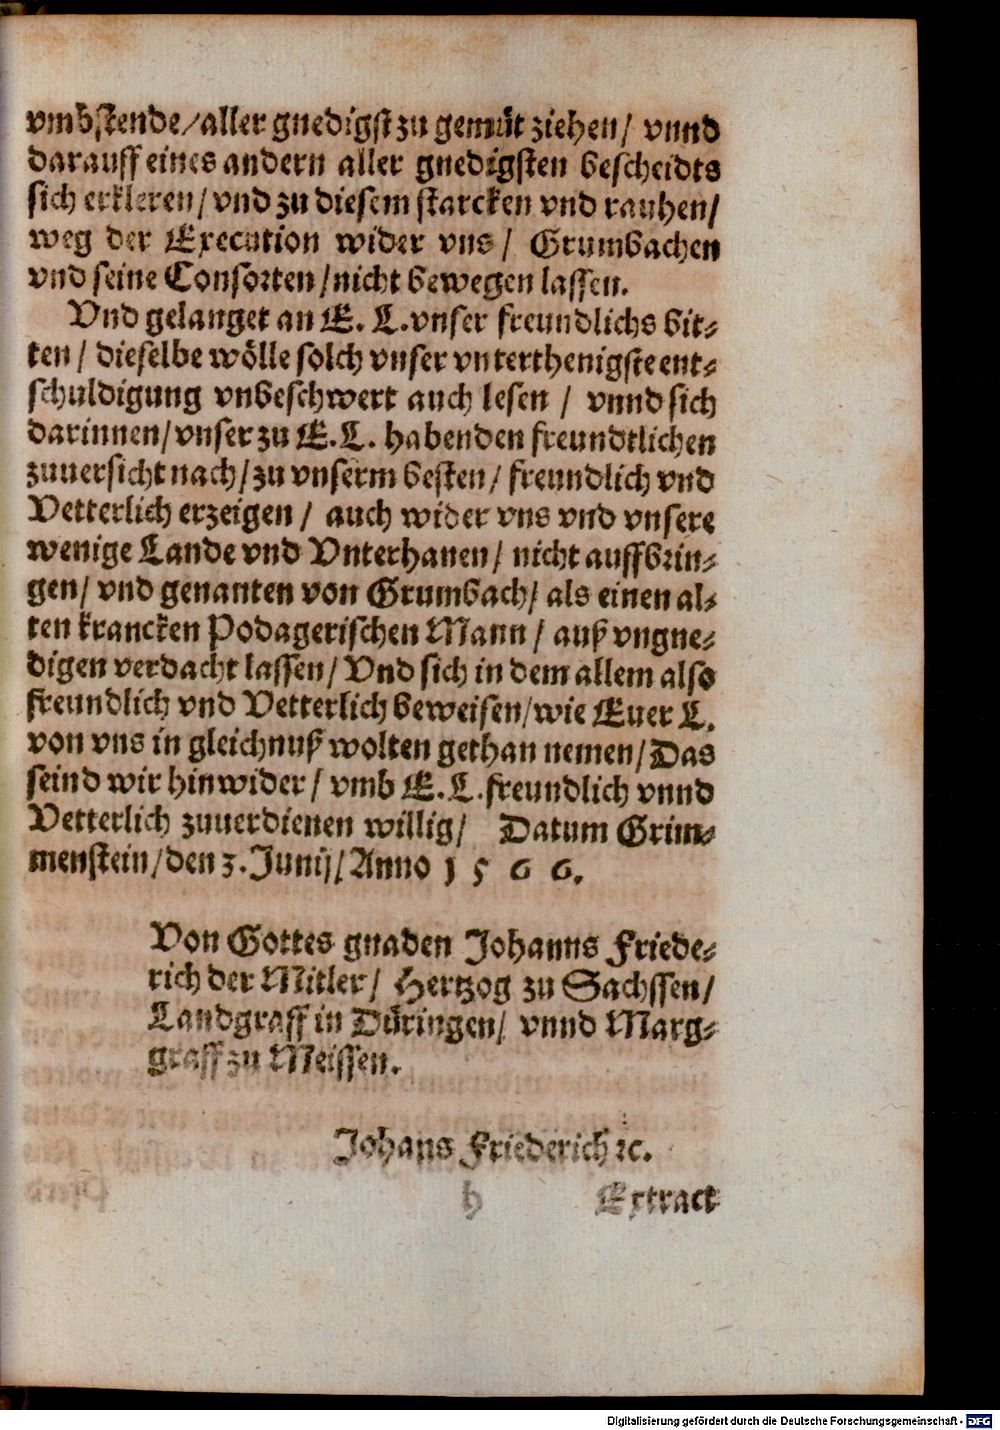 vmbstende/aller gnedigst zu gemüt ziehen/ vnnd
darauff eines andern aller gnedigsten bescheidts
sich erkleren/ vnd zu diesem starcken vnd rauhen/
weg der Execution wider vns/ Grumbachen
vnd seine Consorten/nicht bewegen lassen.
Vnd gelanget an E. L. vnser freundlichs bit-
ten/ dieselbe wölle solch vnser vnterthenigste ent-
schuldigung vnbeschwert auch lesen / vnnd sich
darinnen/ vnser zu E. L. habenden freundtlichen
zuuersicht nach/ zu vnserm besten/ freundlich vnd
Vetterlich erzeigen / auch wider vns vnd vnsere
wenige Lande vnd Vnterhanen/ nicht auffbrin-
gen/ vnd genanten von Grumbach/ als einen al-
ten krancken Podagerischen Mann / auß vngne-
digen verdacht lassen/ Vnd sich in dem allem also
freundlich vnd Vetterlich beweisen/wie Euer L.
von vns in gleichnuß wolten gethan nemen/ Das
seind wir hinwider/ vmb E. L. freundlich vnnd
Vetterlich zuuerdienen willig/ Datum Grim-
menstein/den 3. Junij/ Anno 1 5 6 6.
Von Gottes gnaden Johanns Friede-
rich der Mitler/ Hertzog zu Sachssen/
Landgraff in Düringen/ vnnd Marg-
graff zu Meissen.
Johans Friederich ꝛc.
h Extract
Digitalisierung gefördert durch die Deutsche Forschungsgemeinschaft - DFG